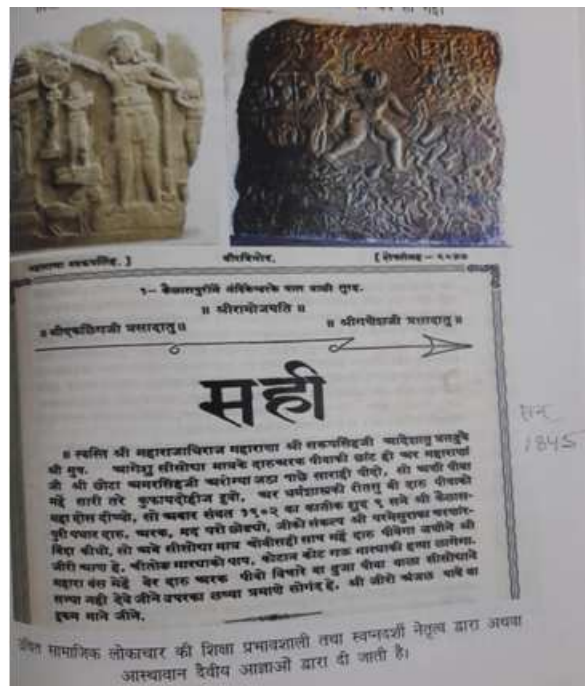 महाराणा सरूपसिंह. ] वीरविनोद. [ शेषसंग्रह - २०७७
१- कैलासपुरीमें नंदिकेश्वरके पास वाली सुरह.
॥ श्रीरामोजयति ॥
॥ श्रीएकलिंगजी प्रसादातु ॥ ॥ श्रीगणेशजी प्रसादातु ॥
सही
॥ स्वस्ति श्री महाराजाधिराज महाराणा श्री सरूपसिंहजी आदेशातु
श्री मुष. आगेशु सीसोद्या मात्रके दारु अरक पीवाकी छांट ही अर महाराणा
जी श्री छोटा अमरसिंहजी अरोग्या जठा पाछे साराही पीदो, सो अणी पीवा
महें सारी तरे कुफायदोहीज हुवो, अर धर्मशास्त्रकी रीतसु बी दारु पीवाको
महा दोस दीष्यो, सो अबार संवत १९०२ का कातीक शुद ९ सने श्री कैलास-
पुरी पधार दारु, अरक, मद परो छोड्यो, जीको संकल्प श्री परमेसुराका
बिदा कीधो, सो अबे सीसोद्या मात्र चोवीसही साष महें दारु पीवेगा जणीने श्री
जीरी आण है, चीतोड मारयाको पाप, कोटान कोट गऊ मारयाकी हत्या लागेगा.
महारा बंस महें वेर दारु अरक पीवो विचारे वा दुजा पीवा वाला सीसोद्याने
सज्या नही देवे जीने उपरका लष्या प्रमाणे सोगंद है, श्री जीरो अंजळ पावे वा
हुकम माने जीने.
सन्
1845
सामाजिक लोकाचार की शिक्षा प्रभावशाली तथा स्वप्नदर्शी नेतृत्व द्वारा अथवा
आस्थावान दैवीय आज्ञाओं द्वारा दी जाती है।